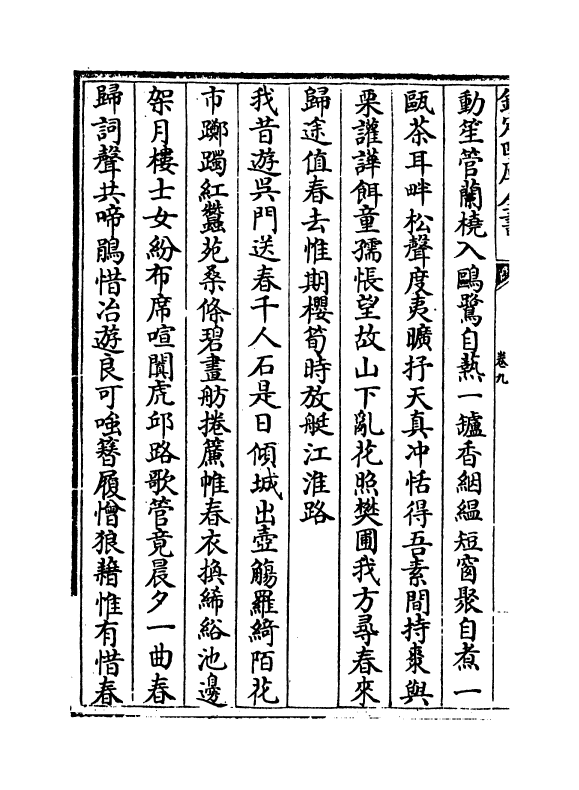 欽定四庫全書
卷九
動笙管蘭橈入鷗鷺自熱一鑪香絪緼短窗聚自煮一
甌茶耳畔松聲度夷曠抒天真冲恬得吾素間持棗與
栗讙譁餌童孺悵望故山下亂花照樊圃我方尋春來
歸途值春去惟期櫻筍時放艇江淮路
我昔遊吳門送春千人石是日傾城出壺觴羅綺陌花
市躑躅紅蠶苑桑條碧畫舫捲簾帷春衣換絺綌池邊
架月樓士女紛布席喧闐虎邱路歌管竟晨夕一曲春
歸詞聲共啼鵑惜冶遊良可嗤簪履憎狼藉惟有惜春